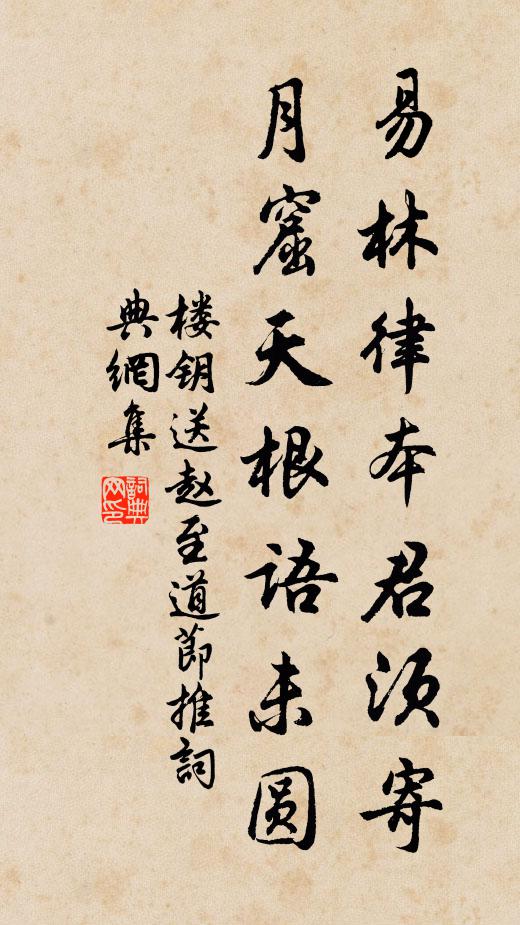 易林律本君须寄
月窟天根语未圆
楼钥送赵至道节推詞
典網集
詞典
网印